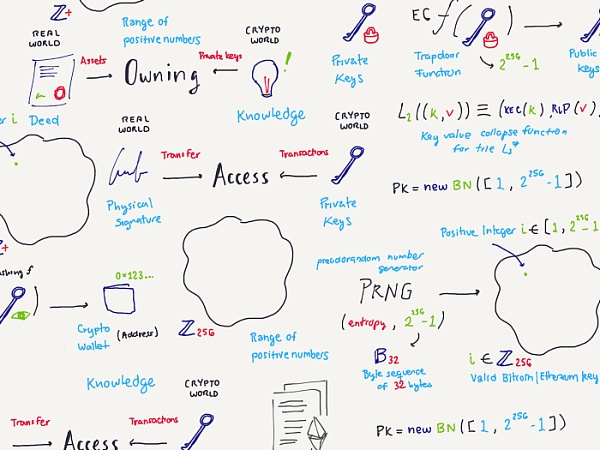 ℤ+
Range of
positive numbers
REAL
WORLD
Assets
Owning
Private keys
CRYPTO
WORLD
!
Deed
Knowledge
Private
Keys
EC f( )
Trapdoor
Function
2^256-1
Public
keys
er i
L2((k,v)) ≡ (KEC(k), RLP(v),
Key value collapse function
for trie L3*
REAL
WORLD
Transfer
Access
Transactions
CRYPTO
WORLD
Physical
Signature
Private
Keys
PK = new BN([1, 2^256-1])
Positive Integer i ∈ [1, 2^256-1
ℤ+
ashing f
)
0x123...
Crypto
Wallet
(Address)
ℤ256
Range of
positive numbers
pseudorandom number
generator
PRNG
(entropy, 2^256-1)
B32
Byte sequence
of 32 bytes
i ∈ ℤ256
Valid Bitcoin|Ethereum key
Knowledge
CRYPTO
WORLD
Transfer
Access
Transactions
PK = new BN([1, 2^256-1])